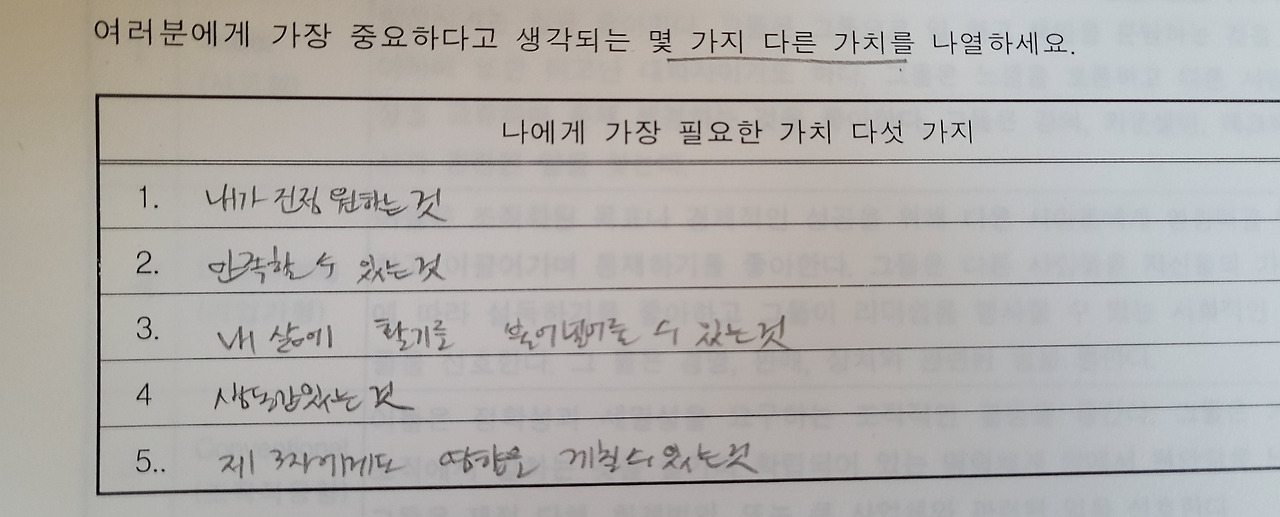 여러분에게 가장 중요하다고 생각되는 몇 가지 다른 가치를 나열하세요.
나에게 가장 필요한 가치 다섯 가지
1. 내가 진정 원하는 것
2. 만족할 수 있는 것
3. 내 삶에 활기를 불어넣어줄 수 있는 것
4 생동감있는 것
5.. 제 3자에게도 영향을 끼칠 수 있는 것